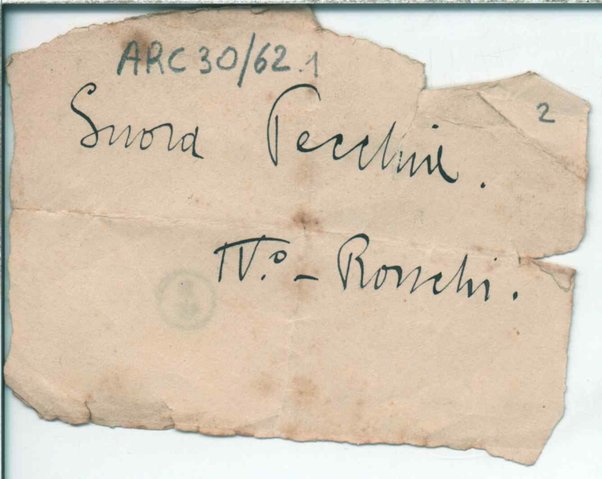 ARC 30/62.1
2
Suora Pecchie.
IV.º - Ronchi.